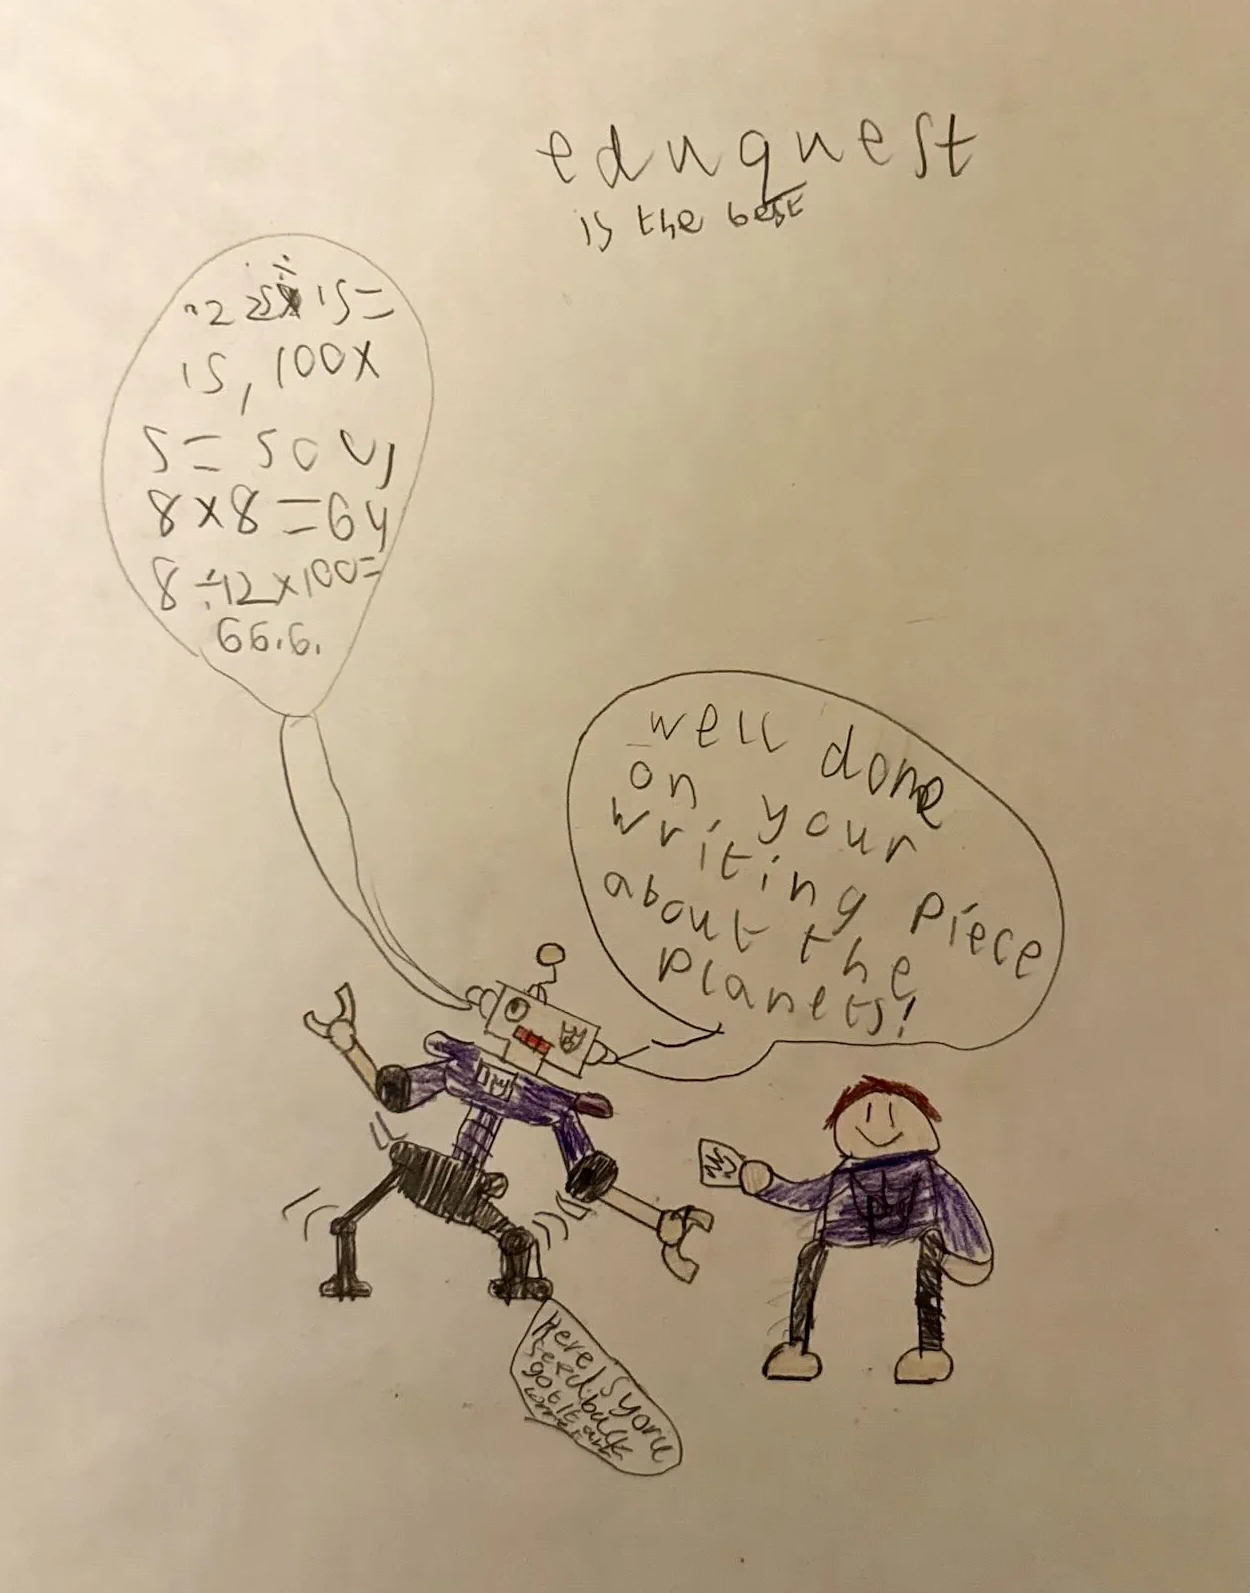 eduquest
is the best
225÷15=
15, 100x
5=500,
8x8=64
8÷12x100=
66.6.
well done
on your
writing piece
about the
planets!
Here is your
feedback
got it all